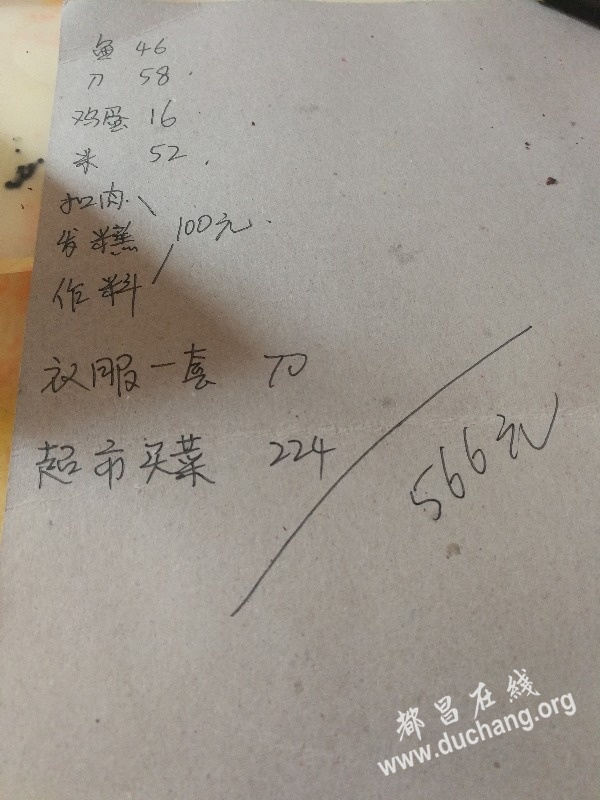 鱼 46
刀 58.
鸡蛋 16
米 52.
扣肉
发糕 100元.
作料
衣服一套 70
超市买菜 224
566元
都昌在線
www.duchang.org